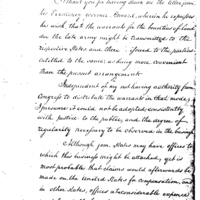 Thank you for having sent on the letter from
his Excellency governor Howard, wherein he expresses
his wish that the warrants for the bounties of land
in the late army might be transmitted to the
respective States and there issued to the parties
entitled to the same as being more convenient
than the present arrangement.
Independent of my not having authority from
Congress to distribute the warrants in that mode,
I presume it could not be adopted consistently
with justice to the public, and the degree of
regularity necessary to be observed in the business
Although some States may have offices to
which this business might be attached, yet it is
most probable that claims would afterwards be
made on the United States for compensation, and
in other States, offices at considerable expence